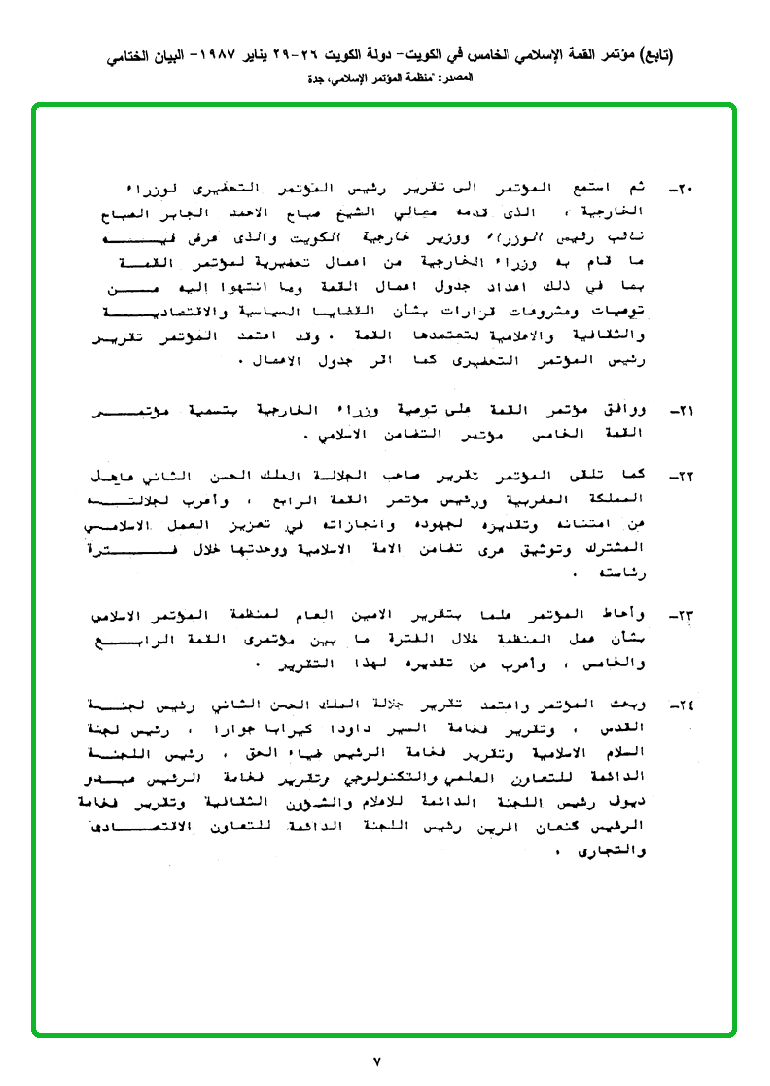 (تابع) مؤتمر القمة الإسلامي الخامس في الكويت- دولة الكويت ٢٦-٢٩ يناير ١٩٨٧- البيان الختامي
المصدر: "منظمة المؤتمر الإسلامي، جدة
٢٠- ثم استمع المؤتمر الى تقرير رئيس المؤتمر التحضيرى لوزراء
الخارجية ، الذى قدمه معالي الشيخ صباح الاحمد الجابر الصباح
نائب رئيس الوزراء ووزير خارجية الكويت والذى عرض فيه
ما قام به وزراء الخارجية من اعمال تحضيرية لمؤتمر القمة
بما في ذلك اعداد جدول اعمال القمة وما انتهوا إليه من
توصيات ومشروعات قرارات بشأن القضايا السياسية والاقتصادية
والثقافية والاعلامية لتعتمدها القمة . وقد اعتمد المؤتمر تقرير
رئيس المؤتمر التحضيرى كما اقر جدول الاعمال .
٢١- ووافق مؤتمر القمة على توصية وزراء الخارجية بتسمية مؤتمر
القمة الخامس مؤتمر التضامن الاسلامي .
٢٢- كما تلقى المؤتمر تقرير صاحب الجلالة الملك الحسن الثاني عاهل
المملكة المغربية ورئيس مؤتمر القمة الرابع ، وأعرب لجلالته
عن امتنانه وتقديره لجهوده وانجازاته في تعزيز العمل الاسلامي
المشترك وتوثيق عرى تضامن الامة الاسلامية ووحدتها خلال فترة
رئاسته .
٢٣- وأحاط المؤتمر علما بتقرير الامين العام لمنظمة المؤتمر الاسلامي
بشأن عمل المنظمة خلال الفترة ما بين مؤتمرى القمة الرابع
والخامس ، وأعرب عن تقديره لهذا التقرير .
٢٤- وبحث المؤتمر واعتمد تقرير جلالة الملك الحسن الثاني رئيس لجنة
القدس ، وتقرير فخامة السير داودا كيرابا جوارا ، رئيس لجنة
السلام الاسلامية وتقرير فخامة الرئيس ضياء الحق ، رئيس اللجنة
الدائمة للتعاون العلمي والتكنولوجي وتقرير فخامة الرئيس عبدو
ديوف رئيس اللجنة الدائمة للاعلام والشؤون الثقافية وتقرير فخامة
الرئيس كنعان افرين رئيس اللجنة الدائمة للتعاون الاقتصادى
والتجارى .
٧